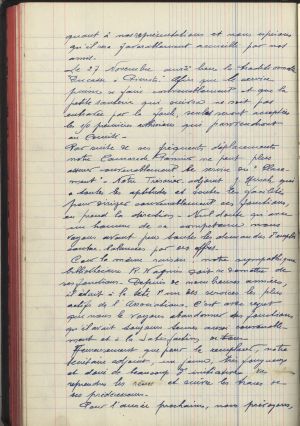 quant à nos représentations et nous espérons
qu'il sera favorablement accueilli par nos
amis.
Le 27 Novembre aura lieu la traditionnelle
que le service
puisse se faire convenablement et que la
petite sauterie qui suivra ne soit pas
entravée par la foule, seules seront acceptées
les premières adhésions qui parviendront
au Comité.
Par suite de ses fréquents déplacements
notre Camarade ne peut plus
assurer convenablement le service du "Place-
ment". Notre Trésorier adjoint, qui
a toutes les aptitudes et toutes les qualités
pour diriger convenablement ces fonctions,
en prend la direction. Nul doute qu'avec
un homme de sa compétence nous
voyons avant peu toutes les demandes d'emploi
par ses offres.
Pour la même raison, notre sympathique
bibliothécaire R. Wagnin doit se démettre de
ses fonctions. Depuis de nombreuses années,
il était à la tête d'un des services les plus
actifs de l'Association. C'est avec regret
que nous le voyons abandonner des fonctions
qu'il avait toujours tenues aussi convenable-
ment et à la satisfaction
Heureusement que pour le remplacer, notre
secrétaire adjoint, un jeune
et doué de beaucoup d'initiative, va
reprendre les et suivre les traces de
ses prédécesseurs.
Pour l'année prochaine, nous prévoyons,